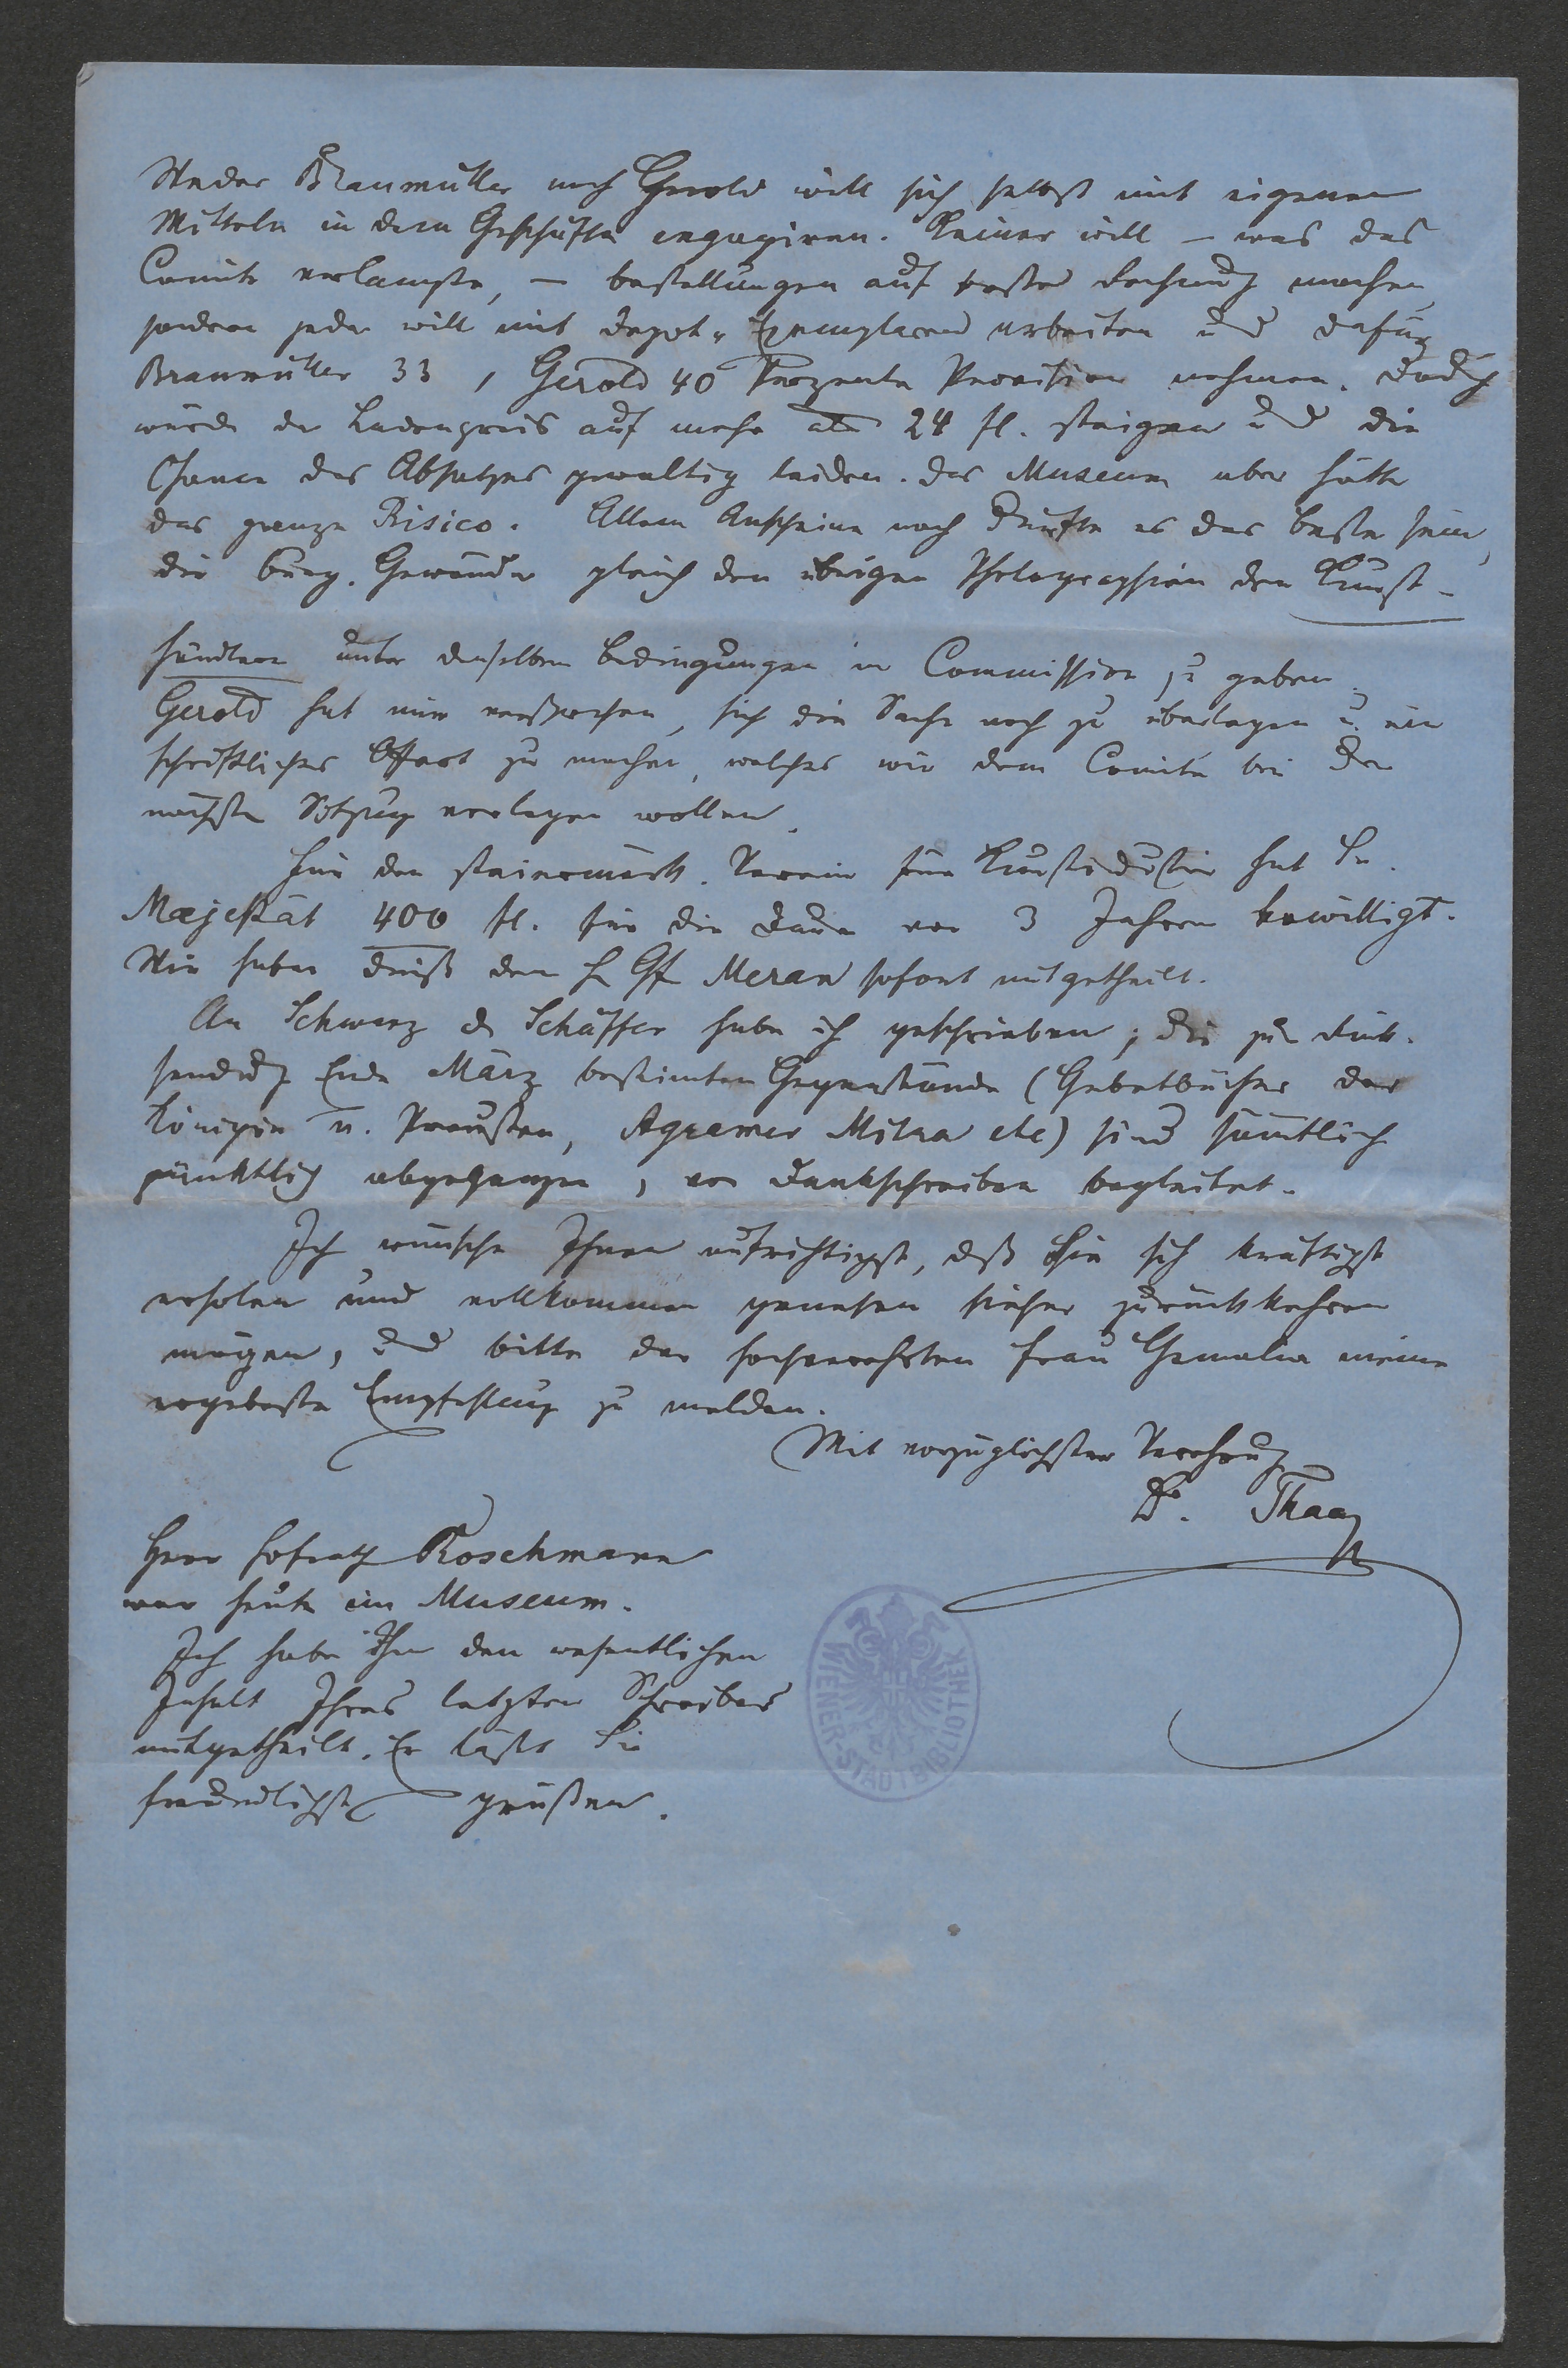 Weder Braumüller noch Gerold will sich selbst mit eigenen
Mitteln in dem Geschäfte engagiren. Keiner will – was das
Comité verlangte, – bestellungen auf feste Rechnung machen,
sondern jeder will mit Depot-Exemplaren arbeiten und dafür
Braumüller 33, Gerold 40 Prozente Provision nehmen. Dadch
würde der Ladenpreis auf mehr als 24 fl. steigen und die
Chance des Absatzes gewaltig leiden. Das Museum aber hätte
das ganze Risico. Allem Anscheine nach dürfte es das beste sein,
die burg. Gewänder gleich den übrigen Photographien den Kunst-
händlern unter denselben Bedingungen in Commission zu geben.
Gerold hat mir versprochen, sich die Sache noch zu überlegen u. ein
schriftliches Offert zu machen, welches wir dem Comité bei der
nächsten Sitzung vorlegen wollen.
Für den steiermärk. Verein für Kunstindustrie hat Se.
Majestät 400 fl. für die Dauer von 3 Jahren bewilligt.
Wir haben dieß dem H Gf Meran sofort mitgetheilt.
An Schwarz & Schäffer habe ich geschrieben; die zur Rück-
sendung Ende März bestimten Gegenstände (Gebetbücher der
Königin v. Preußen, Agramer Mitra etc) sind sämtlich
pünktlich abgegangen, von Dankschreiben begleitet.
Ich wünsche Ihnen aufrichtigst, daß Sie sich kräftigst
erholen und vollkommen genesen hieher zurückkehren
mögen, und bitte der hochverehrten Frau Gemalin meine
ergebenste Empfehlung zu melden.
Mit vorzüglichster Verehrung
Dr. Thaa
Herr Hofrath Roschmann
war heute im Museum.
Ich habe Ihm den wesentlichen
Inhalt Ihres letzten Schreibens
mitgetheilt. Er läßt Sie
freundlichst grüßen.
WIENER STADTBIBLIOTHEK